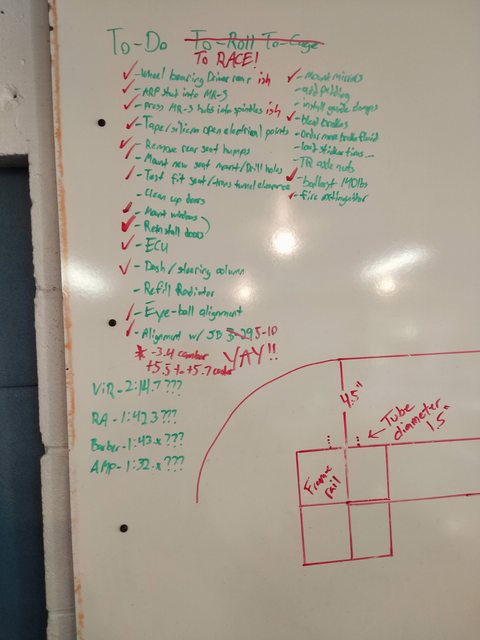 To-Do To-Roll To-Cage
To RACE!
- Wheel bearing Driver rear ish
- ARP stud into MR-S
- press MR-S hubs into spindles ish
- Tape/silicon open electrical points
- Remove rear seat humps
- Mount new seat mount/Drill holes
- Test fit seat/trans tunnel clearance
- Clean up doors
- Mount windows
- Reinstall doors
- ECU
- Dash/steering column
- Refill Radiator
- Eye-ball alignment
- Alignment w/ JD 5-10
* -3.4 camber YAY!!
+5.5 to +5.7 caster
- Mount mirrors
- add padding
- install guide clamps
- bleed brakes
- Order more brake fluid
- load sticker tires...
- TQ axle nuts
- ballast 140lbs
- fire extinguisher
VIR - 2:14.7???
RA - 1:42.3???
Barber - 1:43.x???
AMP - 1:32.x???
4.5"
Tube
diameter
1.5"
Frame
rail